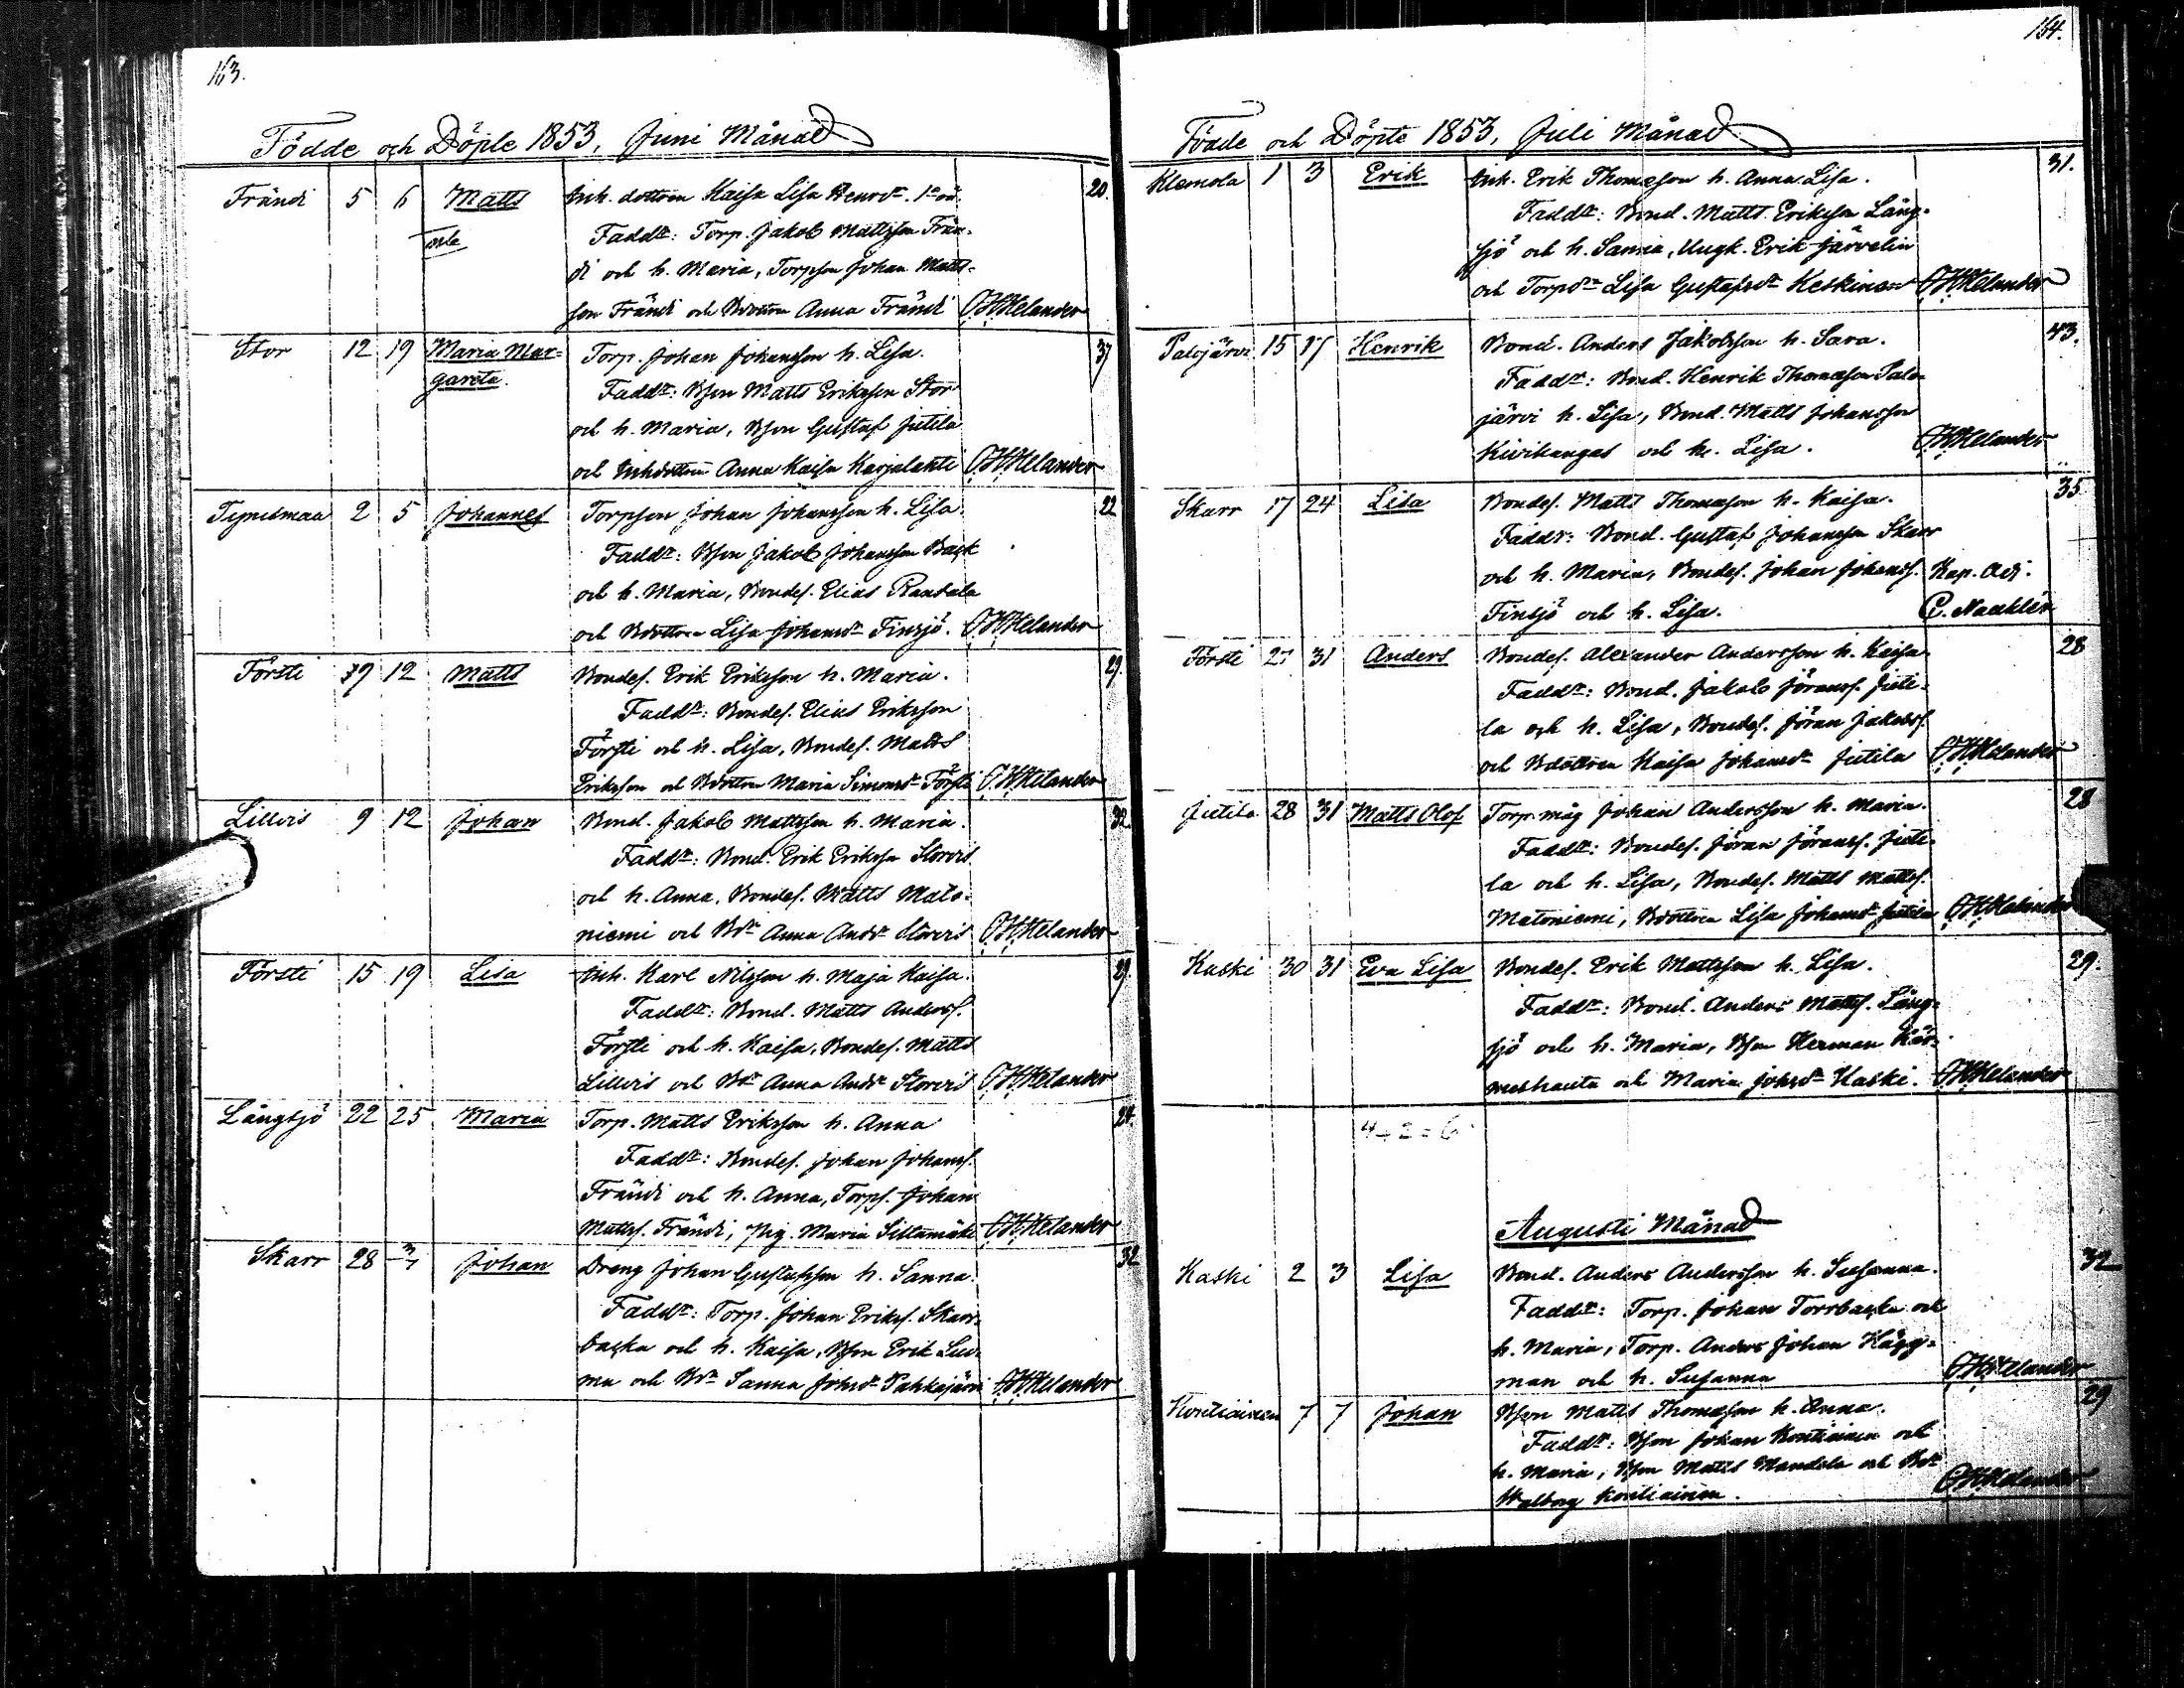 163.
Födde och Döpte 1853, Juni Månad
Frändi 5 6 Matts Inh. dottren Kaisa Lisa Henrdr. 1a oä. 20.
oä Faddr: Torp. Jakob Mattsson Frän-
di och h. Maria, Torpson Johan Matts-
son Frändi och Bdottren Anna Frändi O.H.Helander
Stor 12 19 Maria Mar= Torp. Johan Johansson h. Lisa. 37
gareta. Faddr: Bson Matts Eriksson Stor
och h. Maria, Bson Gustaf Jutila
och Inhdottren Anna Kaisa Karjalahti O.H.Helander
Tynismaa 2 5 Johannes Torpson Johan Johansson h. Lisa. 22
Faddr: Bson Jakob Johansson Back
och h. Maria, Bondes. Elias Rantala
och Bdottren Lisa Johansdr Finsjö. O.H.Helander
Försti 9 12 Matts Bondes. Erik Eriksson h. Maria. 29.
Faddr: Bondes. Elias Eriksson
Försti och h. Lisa, Bondes. Matts
Eriksson och Bdottren Maria Simonsdr Försti O.H.Helander
Lillvis 9 12 Johan Bond. Jakob Mattsson h. Maria. 32
Faddr: Bond. Erik Eriksson Storvis
och h. Anna, Bondes. Matts Mato-
niemi och Bdr Anna Andr Storvis O.H.Helander
Försti 15 19 Lisa Inh. Karl Nilsson h. Maja Kaisa. 29
Faddr: Bond. Matts Anders.
Försti och h. Kaisa, Bondes. Matts
Lillvis och Bdr Anna Andr Storvis O.H.Helander
Långsjö 22 25 Maria Torp. Matts Eriksson h. Anna 24.
Faddr: Bondes. Johan Johans.
Frändi och h. Anna, Torps. Johan
Matts. Frändi, Pig. Maria Sillamäki O.H.Helander
Skarr 28 3/7 Johan Dreng Johan Gustafsson h. Sanna. 32
Faddr: Torp. Johan Eriks. Skarr-
backa och h. Kaisa, Bson Erik
och Bdr Sanna Johsdr Pahkajärvi O.H.Helander
154.
Födde och Döpte 1853, Juli Månad
Klemola 1 3 Erik Inh. Erik Thomasson h. Anna Lisa. 31.
Faddr: Bond. Matts Eriksson Lång-
sjö och h. Sanna, Ungk. Erik Järvelin
och Torpdr Lisa Gustafsdr Keskinen O.H.Helander
Palojärvi 15 17 Henrik Bond. Anders Jakobsson h. Sara. 43.
Faddr: Bond. Henrik Thomasson Palo-
järvi h. Lisa, Bond. Matts Johansson
Kivikangas och h. Lisa. O.H.Helander
Skarr 17 24 Lisa Bondes. Matts Thomasson h. Kaisa. 35
Faddr: Bond. Gustaf Johansson Skarr
och h. Maria, Bondes. Johan Johans. Kap. Adj.
Finsjö och h. Lisa. C. Naeklér
Försti 27 31 Anders Bondes. Alexander Andersson h. Kaisa. 28
Faddr: Bond. Jakob Jörans. Juti-
la och h. Lisa, Bondes. Jöran Jakobs.
och Bdottren Kaisa Johansdr Jutila O.H.Helander
Jutila 28 31 Matts Olof Torp. måg Johan Andersson h. Maria. 28
Faddr: Bondes. Jöran Jörans. Juti-
la och h. Lisa, Bondes. Matts Matts.
Matoniemi, Bdottren Lisa Johansdr Jutila O.H.Helander
Kaski 30 31 Eva Lisa Bondes. Erik Mattsson h. Lisa. 29.
Faddr: Bond. Anders Matts. Lång-
sjö och h. Maria, Bson Herman Kär-
meshauta och Maria Johsdr Kaski. O.H.Helander
4+2=6
Augusti Månad
Kaski 2 3 Lisa Bond. Anders Andersson h. Susanna. 32
Faddr: Torp. Johan Torrbacka och
h. Maria, Torp. Anders Johan Hägg-
man och h. Susanna O.H.Helander
Kontiainen 7 7 Johan Bson Matts Thomasson h. Anna. 29
Faddr: Bson Johan Kontiainen och
h. Maria, Bson Matts Mandola och Bdr
Walborg Kontiainen. O.H.Helander